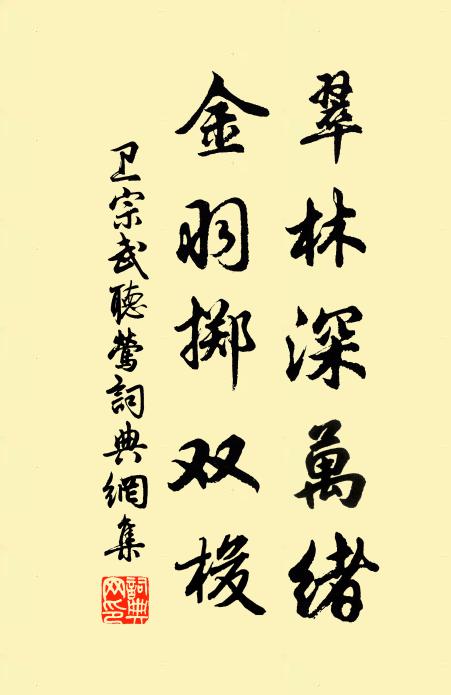 翠林深萬緒
金羽擲双梭
卫宗武聽鶯詞典網集
詞典网印